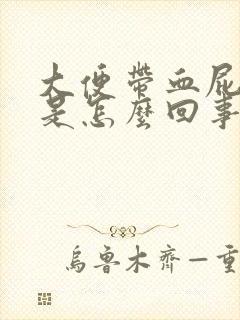 大便带血屁
是怎麼回事
乌鲁木齐—重